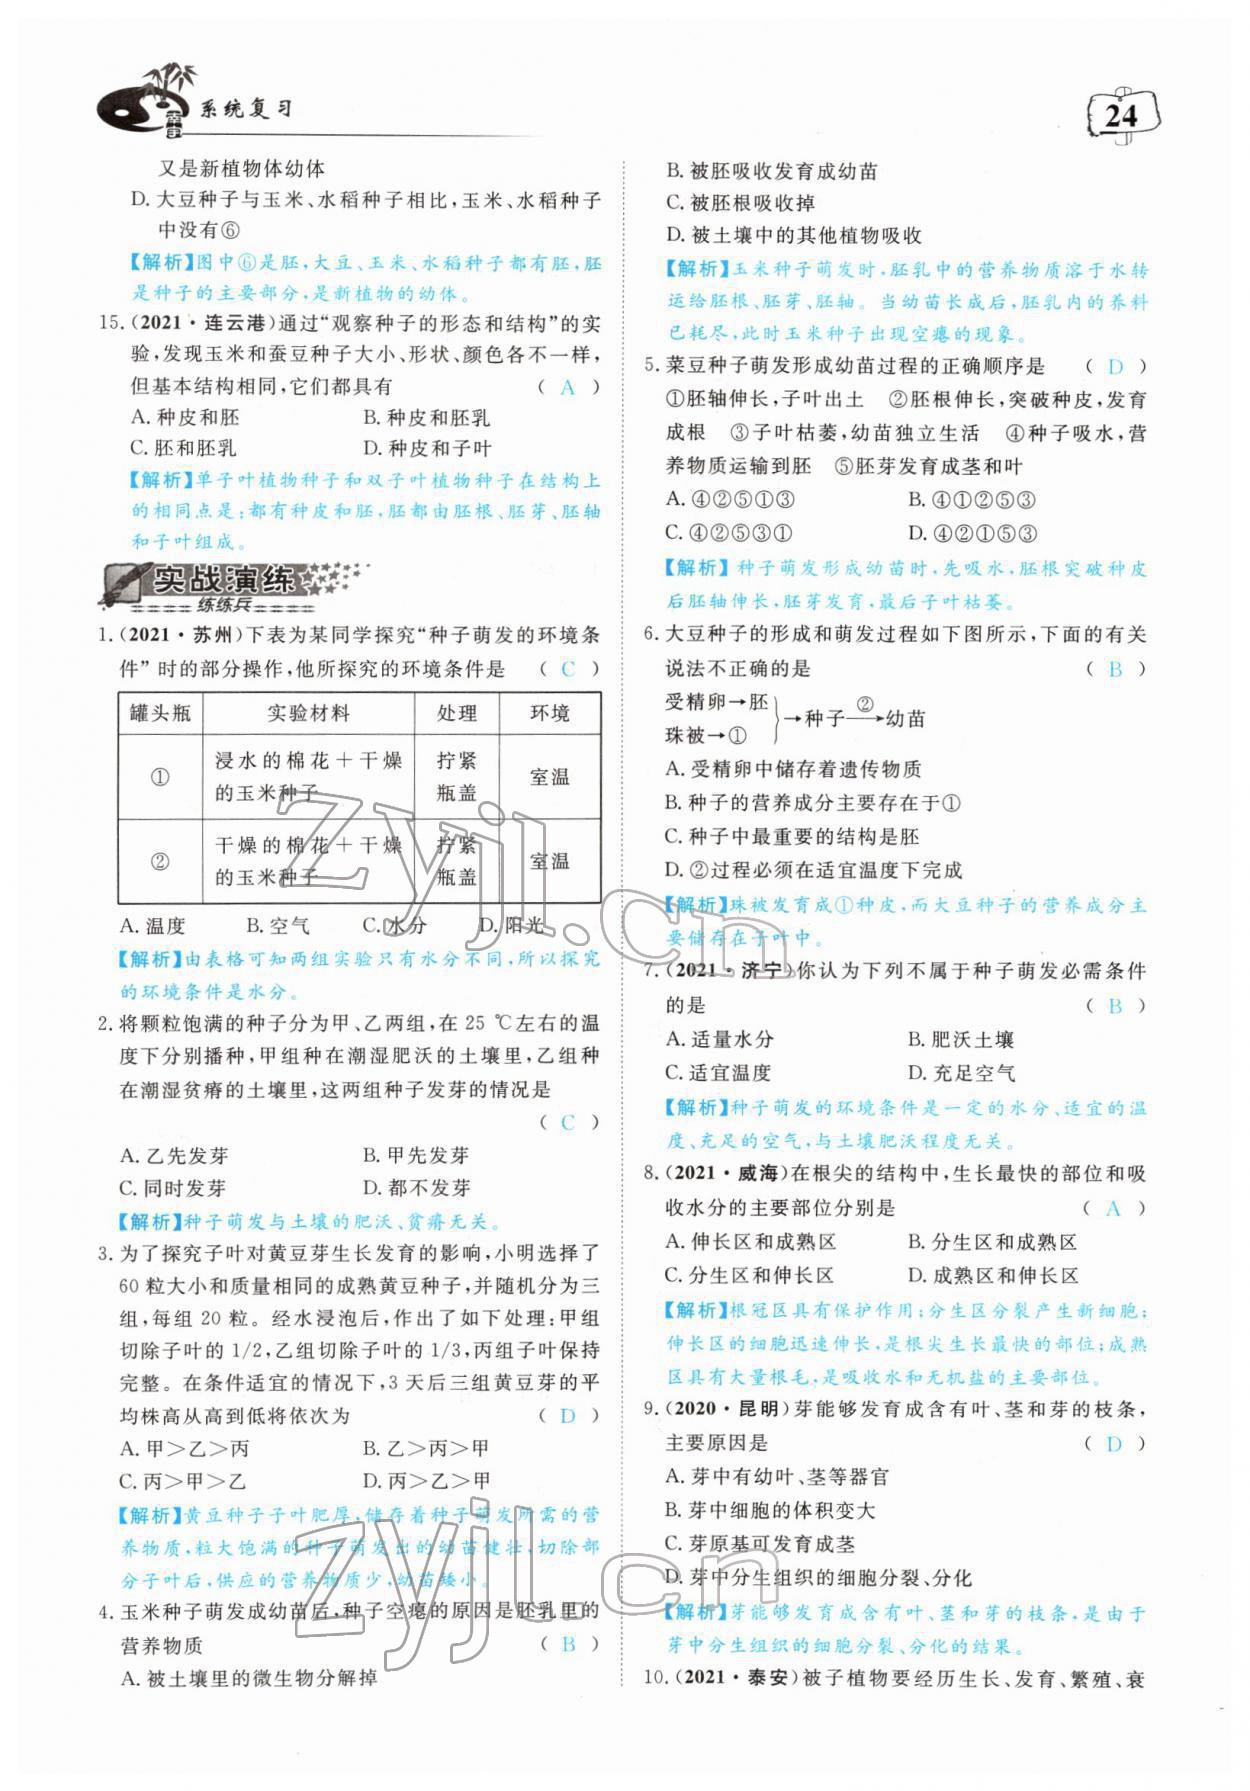 系统复习
24
又是新植物体幼体
D. 大豆种子与玉米、水稻种子相比，玉米、水稻种子
中没有⑥
【解析】图中⑥是胚，大豆、玉米、水稻种子都有胚，胚
是种子的主要部分，是新植物的幼体。
15. (2021·连云港)通过“观察种子的形态和结构”的实
验，发现玉米和蚕豆种子大小、形状、颜色各不一样，
但基本结构相同，它们都具有 （ A ）
A. 种皮和胚 B. 种皮和胚乳
C. 胚和胚乳 D. 种皮和子叶
【解析】单子叶植物种子和双子叶植物种子在结构上
的相同点是：都有种皮和胚，胚都由胚根、胚芽、胚轴
和子叶组成。
实战演练
练练兵
1. (2021·苏州)下表为某同学探究“种子萌发的环境条
件”时的部分操作，他所探究的环境条件是 （ C ）
罐头瓶 实验材料 处理 环境
① 浸水的棉花＋干燥的玉米种子 拧紧瓶盖 室温
② 干燥的棉花＋干燥的玉米种子 拧紧瓶盖 室温
A. 温度 B. 空气 C. 水分 D. 阳光
【解析】由表格可知两组实验只有水分不同，所以探究
的环境条件是水分。
2. 将颗粒饱满的种子分为甲、乙两组，在 25 ℃左右的温
度下分别播种，甲组种在潮湿肥沃的土壤里，乙组种
在潮湿贫瘠的土壤里，这两组种子发芽的情况是
（ C ）
A. 乙先发芽 B. 甲先发芽
C. 同时发芽 D. 都不发芽
【解析】种子萌发与土壤的肥沃、贫瘠无关。
3. 为了探究子叶对黄豆芽生长发育的影响，小明选择了
60 粒大小和质量相同的成熟黄豆种子，并随机分为三
组，每组 20 粒。经水浸泡后，作出了如下处理：甲组
切除子叶的 1/2，乙组切除子叶的 1/3，丙组子叶保持
完整。在条件适宜的情况下，3 天后三组黄豆芽的平
均株高从高到低将依次为 （ D ）
A. 甲＞乙＞丙 B. 乙＞丙＞甲
C. 丙＞甲＞乙 D. 丙＞乙＞甲
【解析】黄豆种子子叶肥厚，储存着种子萌发所需的营
养物质，粒大饱满的种子萌发出的幼苗健壮，切除部
分子叶后，供应的营养物质少，幼苗矮小。
4. 玉米种子萌发成幼苗后，种子空瘪的原因是胚乳里的
营养物质 （ B ）
A. 被土壤里的微生物分解掉
B. 被胚吸收发育成幼苗
C. 被胚根吸收掉
D. 被土壤中的其他植物吸收
【解析】玉米种子萌发时，胚乳中的营养物质溶于水转
运给胚根、胚芽、胚轴。当幼苗长成后，胚乳内的养料
已耗尽，此时玉米种子出现空瘪的现象。
5. 菜豆种子萌发形成幼苗过程的正确顺序是 （ D ）
①胚轴伸长，子叶出土 ②胚根伸长，突破种皮，发育
成根 ③子叶枯萎，幼苗独立生活 ④种子吸水，营
养物质运输到胚 ⑤胚芽发育成茎和叶
A. ④②⑤①③ B. ④①②⑤③
C. ④②⑤③① D. ④②①⑤③
【解析】种子萌发形成幼苗时，先吸水，胚根突破种皮
后胚轴伸长，胚芽发育，最后子叶枯萎。
6. 大豆种子的形成和萌发过程如下图所示，下面的有关
说法不正确的是 （ B ）
受精卵→胚
珠被→①
→种子 ② →幼苗
A. 受精卵中储存着遗传物质
B. 种子的营养成分主要存在于①
C. 种子中最重要的结构是胚
D. ②过程必须在适宜温度下完成
【解析】珠被发育成①种皮，而大豆种子的营养成分主
要储存在子叶中。
7. (2021·济宁)你认为下列不属于种子萌发必需条件
的是 （ B ）
A. 适量水分 B. 肥沃土壤
C. 适宜温度 D. 充足空气
【解析】种子萌发的环境条件是一定的水分、适宜的温
度、充足的空气，与土壤肥沃程度无关。
8. (2021·威海)在根尖的结构中，生长最快的部位和吸
收水分的主要部位分别是 （ A ）
A. 伸长区和成熟区 B. 分生区和成熟区
C. 分生区和伸长区 D. 成熟区和伸长区
【解析】根冠区具有保护作用；分生区分裂产生新细胞；
伸长区的细胞迅速伸长，是根尖生长最快的部位；成熟
区具有大量根毛，是吸收水和无机盐的主要部位。
9. (2020·昆明)芽能够发育成含有叶、茎和芽的枝条，
主要原因是 （ D ）
A. 芽中有幼叶、茎等器官
B. 芽中细胞的体积变大
C. 芽原基可发育成茎
D. 芽中分生组织的细胞分裂、分化
【解析】芽能够发育成含有叶、茎和芽的枝条，是由于
芽中分生组织的细胞分裂、分化的结果。
10. (2021·泰安)被子植物要经历生长、发育、繁殖、衰
zyjl.cn
zyjl.cn